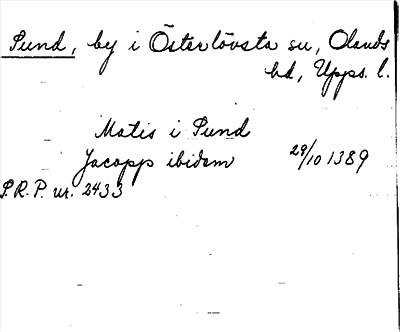 Sund, by i Österlövsta sn, Olands
hd, Upps. l.
Matis i Sund
Jacopp ibidem 29/10 1389
S.R.P. nr. 2433